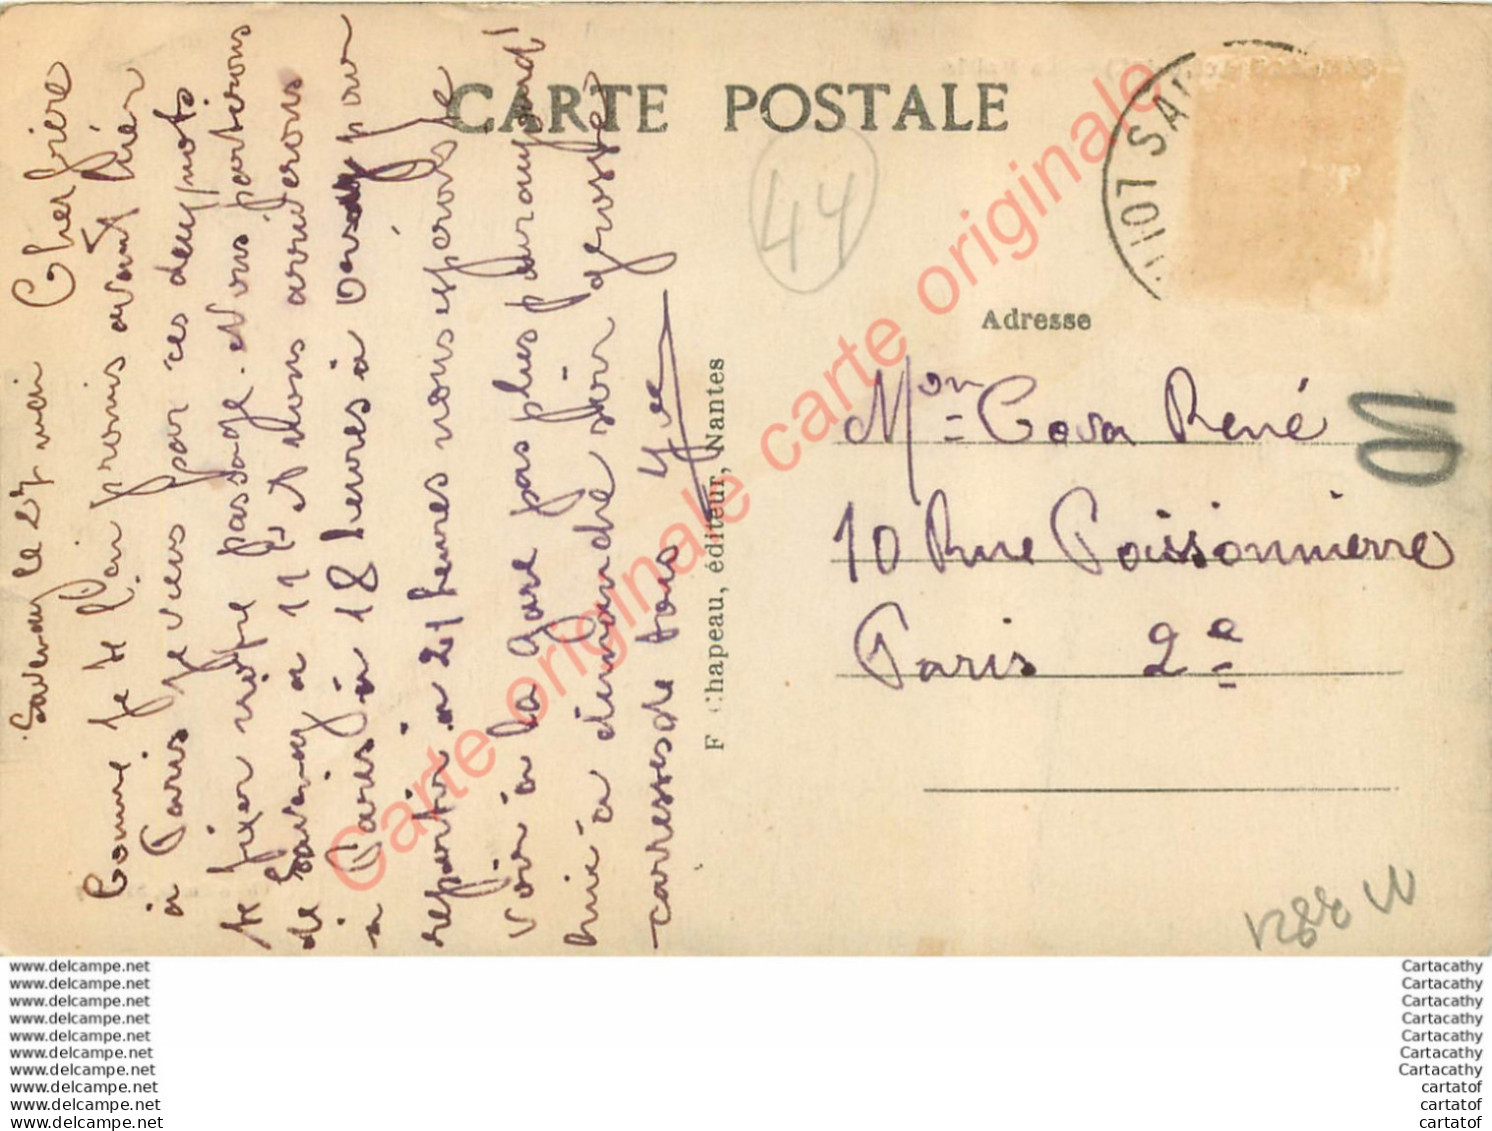 CARTE POSTALE
Savenay le 27 mai Cher fière
Comme je te l'ai promis avant hier
à Paris je viens par ces deux mots
te fixer notre passage. Nous partirons
de Savenay à 11h et nous arriverons
à Paris à 18 heures à pour
repartir à 21 heures nous esperons te
voir à la gare pas plus aujourd'
hui à dimanche soir grosses
carresses de tous Yve
F. Chapeau, éditeur, Nantes
44
107 SA
Adresse
Mon = Cova René
10 Rue Poissonnierre
Paris 2e
Carte originale carte originale
www.delcampe.net
www.delcampe.net
www.delcampe.net
www.delcampe.net
www.delcampe.net
www.delcampe.net
www.delcampe.net
www.delcampe.net
www.delcampe.net
www.delcampe.net
Cartacathy
Cartacathy
Cartacathy
Cartacathy
Cartacathy
Cartacathy
Cartacathy
cartatof
cartatof
cartatof